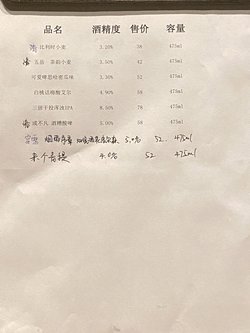 品名 酒精度 售价 容量
比利时小麦 3.20% 38 475ml
五岳 茶韵小麦 3.50% 42 475ml
可爱啤思哈密瓜味 3.30% 52 475ml
白桃话梅酸艾尔 4.90% 58 475ml
三倍干投浑浊IPA 8.50% 78 475ml
成不凡 酒糟酸啤 5.00% 58 475ml
5.0% 52 475ml
来个青提 4.0% 52 475ml